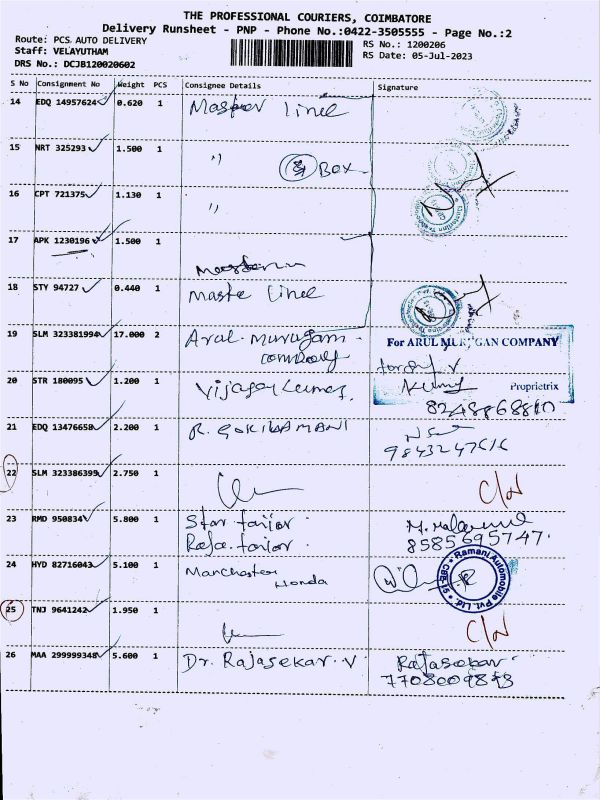 THE PROFESSIONAL COURIERS, COIMBATORE
Delivery Runsheet - PNP - Phone No.:0422-3505555 - Page No.:2
Route: PCS AUTO DELIVERY
RS No.: 1200206
Staff: VELAYUTHAM
RS Date: 05-Jul-2023
DRS No.: DCJB120020602
S No Consignment No Weight PCS Consignee Details Signature
14 EDQ 14957624 0.620 1 Linee
15 NRT 325293 1.500 1 " Box
16 CPT 721375 1.130 1 "
17 APK 1230196 1.500 1
18 STY 94727 0.440 1 Maste Linee
19 SLM 323381994 17.000 2 Arul. Murugan.
company
For ARUL MURUGAN COMPANY
Proprietrix
8248868810
20 STR 180095 1.200 1 Vijayakumar.
21 EDQ 13476658 2.200 1 R. GOKILAMANI
9843247616
22 SLM 323386395 2.750 1 C/N
23 RMD 950834 5.800 1 Star. tailor.
Raja. tailor.
8585695747.
24 HYD 82716043 5.100 1 Manchester
Honda
Ramani Automobile Pvt. Ltd. CBE-18
25 TNJ 9641242 1.950 1 C/N
26 MAA 299999348 5.600 1 Dr. Rajasekar. V. Rajasekar.